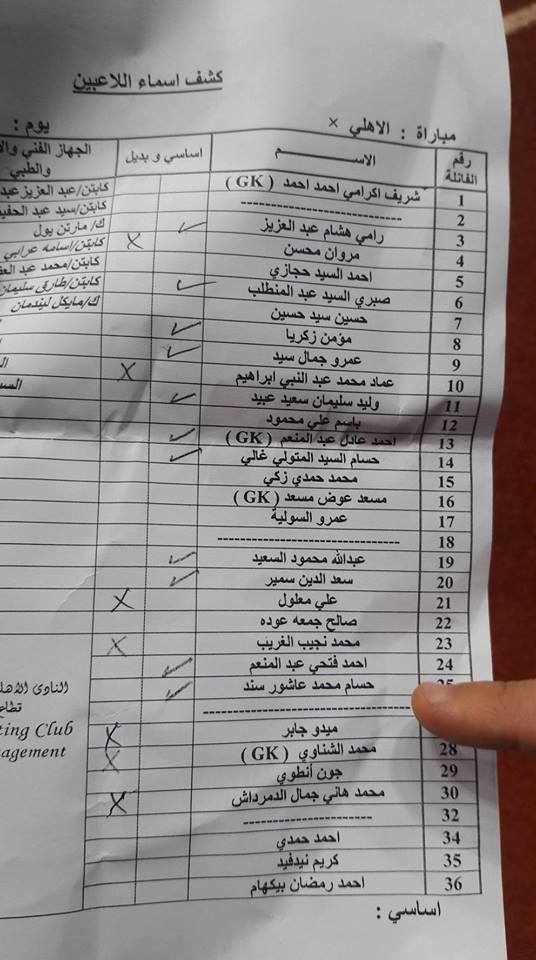 كشف اسماء اللاعبين
مباراة : الاهلي × يوم :
رقم الفانلة الاســـــم اساسي و بديل الجهاز الفني والا والطبي
1 شريف اكرامي احمد احمد ( GK ) كابتن/عبد العزيز عبد
2 ---------------------------- كابتن/سيد عبد الحفي
3 رامي هشام عبد العزيز ✓ ك/ مارتن يول
4 مروان محسن X كابتن/اسامه عرابي
5 احمد السيد حجازي كابتن/محمد عبد الع
6 صبري السيد عبد المنطلب ✓ كابتن/طارق سليمان
7 حسين سيد حسين ك/مايكل ليندمان
8 مؤمن زكريا ✓
9 عمرو جمال سيد ✓
10 عماد محمد عبد النبي ابراهيم X
11 وليد سليمان سعيد عبيد ✓
12 باسم علي محمود
13 احمد عادل عبد المنعم ( GK ) ✓
14 حسام السيد المتولي غالي ✓
15 محمد حمدي زكي
16 مسعد عوض مسعد ( GK )
17 عمرو السولية
18 --------------------------------
19 عبدالله محمود السعيد ✓
20 سعد الدين سمير ✓
21 علي معلول X
22 صالح جمعه عوده
23 محمد نجيب الغريب X
24 احمد فتحي عبد المنعم ✓
25 حسام محمد عاشور سند ✓
--------------------------------
ميدو جابر X
28 محمد الشناوي ( GK ) X
29 جون أنطوي
30 محمد هاني جمال الدمرداش X
32 ----------------------
34 احمد حمدي
35 كريم نيدفيد
36 احمد رمضان بيكهام
اساسي :
النادى الاهل
قطاع
ting Club
nagement